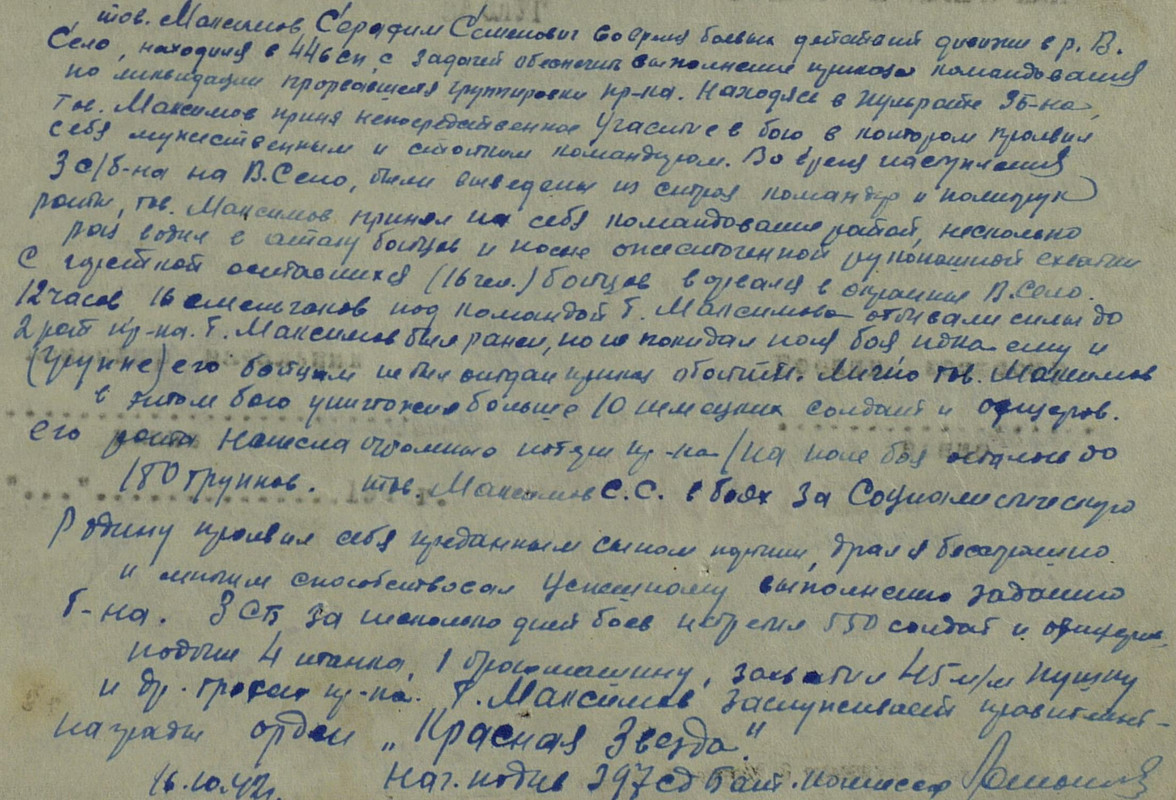 тов. Максимов Серафим Семенович во время боевых действий дивизии в р. В.
Село, находился в 446 сп, с задачей обеспечить выполнение приказа командования
по ликвидации прорвавшейся группировки пр-ка. Находясь в 3б-не,
тов. Максимов принял непосредственное участие в бою в котором проявил
себя мужественным и стойким командиром. Во время наступления
3 с/б-на на В.Село, были выведены из строя командир и политрук
роты, тов. Максимов принял на себя командование ротой, несколько
раз водил в атаку бойцов и после ожесточенной рукопашной схватки
с горсткой оставшихся (16 чел.) бойцов ворвался в окраины В.Село.
12 часов 16 смельчаков под командой т. Максимова отбивали силы до
2 рот пр-ка. т. Максимов был ранен, но не покидал поля боя, пока ему и
(группе) его бойцам не был отдан приказ отойти. Лично тов. Максимов
в этом бою уничтожил больше 10 немецких солдат и офицеров.
его рота нанесла огромные потери пр-ка /на поле боя осталось до
180 трупов. тов. Максимов С.С. в боях за Социалистическую
Родину проявил себя преданным сыном партии, дрался бесстрашно
и многим способствовал успешному выполнению задания
б-на. 3 СБ за несколько дней боев истребил 550 солдат и офицеров,
подбил 4 танка, 1 бронемашину, захватил 45 м/м пушку
и др. трофеи пр-ка. т. Максимов заслуживает правительст-
награды орден „Красная Звезда."
16.10.42г. Нач. подив 397 сд Бат. комиссар